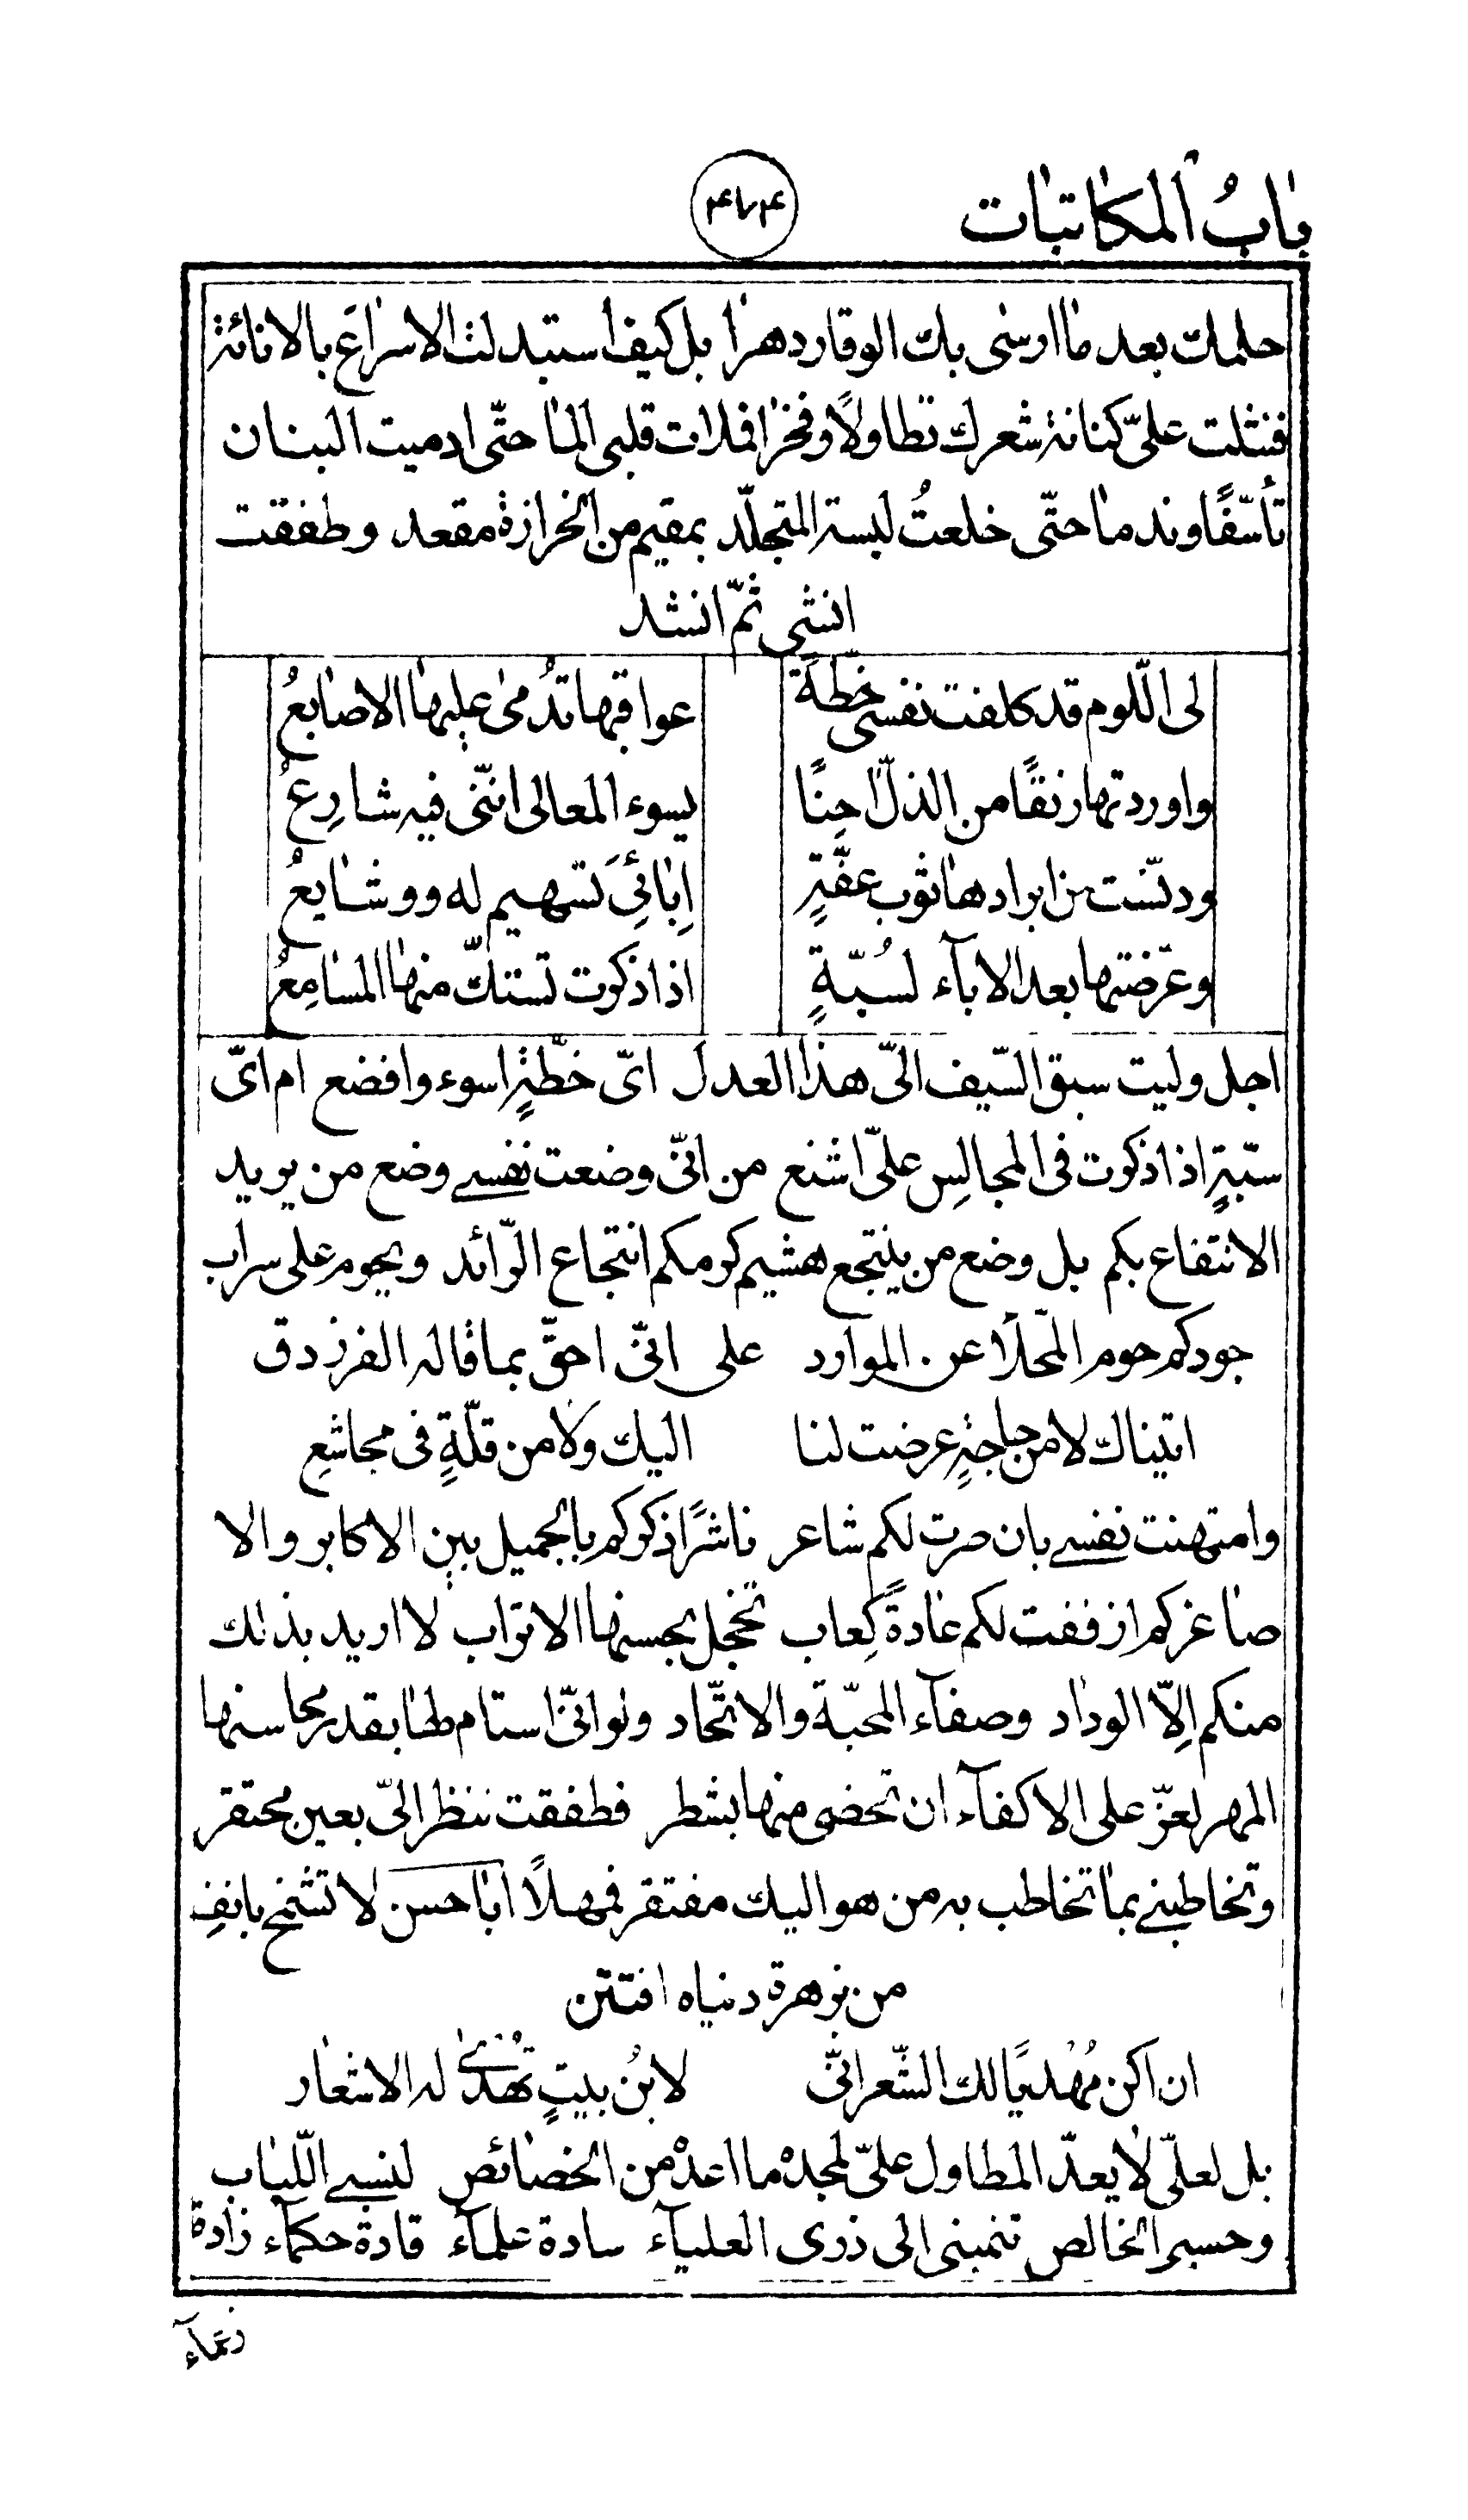 بابُ المكاتبات
حلملت بعد ما ارسى بك الوقار دهرا بل كيف استبدلت الاسراع بالاناءة
فنثلت علىّ كنانة شعرك تطاولاً وفخرا فملات قلبى الما حتّى ادميت البنان
تأسّفًا وندما حتّى خلعتُ لبسة المتجلّد بمقيم من الخرازة مقعد وطفقت
انشى ثمّ انشد
لى الّلوم قد كلفت نفسى خطّةً عواقبها تدُمى عليها الاصابعُ
واوردتها رنقًا من الذلّ اجنًا يسوء المعالى انّنى فيه شارعُ
ودنّست من ابرادها ثوب عفّةٍ اِبائِىَ تسهيم له ووشايعُ
وعرّضتها بعد الاباۤء لسُبّةٍ اذا ذكرت تستكّ منها المسامعُ
اجل وليت سبق السّيف الىّ هذا العدل اىّ خطّةٍ اسوء وافضع ام اىّ
سبّةٍ اذا ذكرت فى المجالِس علىّ اشنع من انّى وضعت نفسى وضع من يريد
الانتفاع بكم بل وضع من ينتجع هشيم كرمكم انتجاع الرّائد ويحوم على سراب
جودكم حوم المحّلأ عن الموارد على انّى احقّ بما قاله الفرزدق
اتيناك لا من حاجةٍ عرضت لنا اليك ولا من قلّةٍ فى مجاشعِ
وامتهنت نفسى بان صرت لكم شاعر ناشرًا ذكركم بالجميل بين الاكابر والا
صاغركم ازففت لكم غادةً كِعاب تخجل بحسنها الاتراب لا اريد بذلك
منكم اِلاّ الوداد وصفاۤء المحبّة والاتّحاد ولو انّى استام لها بقدر محاسنها
المهر لعزّ على الاكفاۤء ان تحضى منها بشطر فطفقت تنظر الىّ بعين محتقر
وتخاطبنى بما تخاطب به من هو اليك مفتقر فمهلاً ابا حسن لا تشمخ بانفِ
من بزهرة دنياه افتتن
ان اكن مُهْديًا لك الشّعر انّى لابنُ بيتٍ تُهْدىٰ له الاشعار
بل لعلّى لا يعدّ المطاول علىّ لمجده ما اعدْ من الخصائص لنسبى اللّباب
وحسبى الخالص تنمينى الى ذرى العلياۤء سادة علماۤء قادة حكماۤء زادة